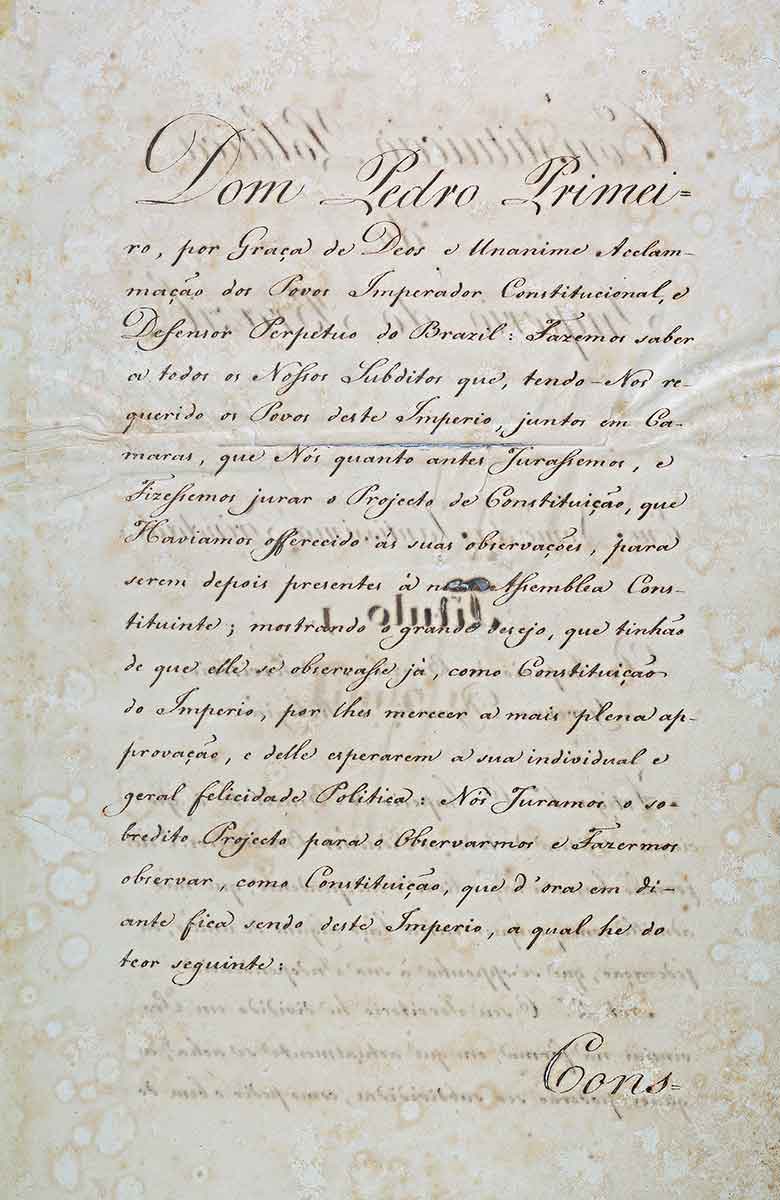 Dom Pedro Primei=
ro, por Graça de Deos e Unanime Acclam-
mação dos Povos Imperador Constitucional, e
Defensor Perpetuo do Brazil: Fazemos saber
a todos os Nossos Subditos que, tendo-Nos re-
querido os Povos deste Imperio, juntos em Ca-
maras, que Nós quanto antes Jurassemos, e
Fizessemos jurar o Projecto de Constituição, que
Haviamos offerecido ás suas observações, para
serem depois presentes á Assemblea Cons-
tituinte; mostrando o grande desejo, que tinhão
de que elle se observasse já, como Constituição
do Imperio, por lhes merecer a mais plena ap-
provação, e delle esperarem a sua individual e
geral felicidade Politica: Nós Juramos o so-
bredito Projecto para o Observarmos e Fazermos
observar, como Constituição, que d'ora em di-
ante fica sendo deste Imperio, a qual he do
teor seguinte:
Cons=